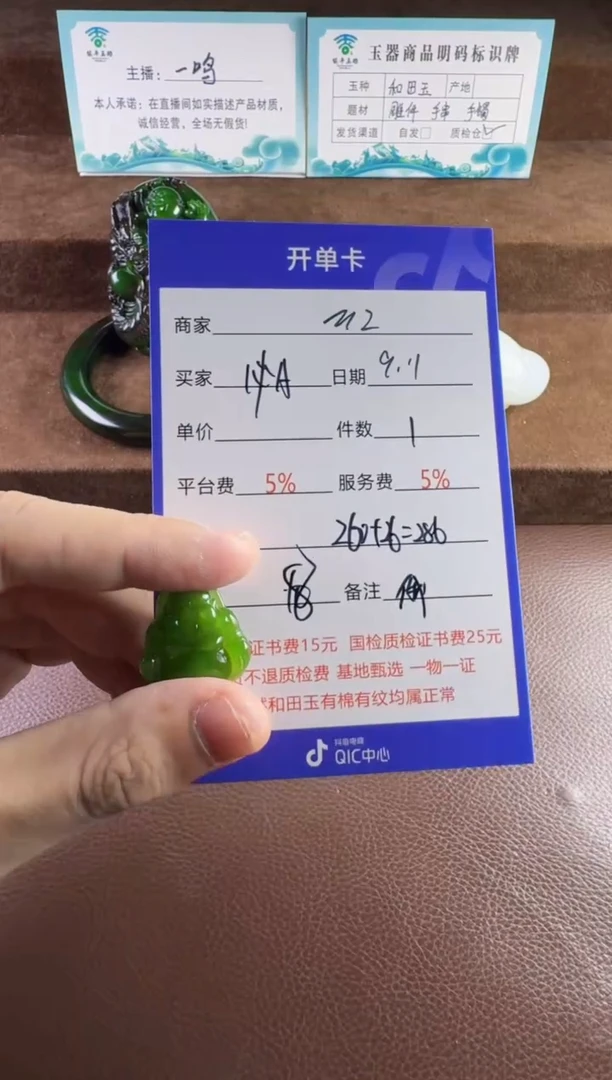 主播：一鸣
本人承诺：在直播间如实描述产品材质，
诚信经营，全场无假货！
玉器商品明码标识牌
玉种 和田玉 产地
题材 雕件 手串 手镯
发货渠道 自发□ 质检仓☑
开单卡
商家
买家 日期 9.11
单价 件数 1
平台费 5% 服务费 5%
260+26=286
备注
证书费15元 国检质检证书费25元
不退质检费 基地甄选 一物一证
和田玉有棉有纹均属正常
抖音电商
QIC中心